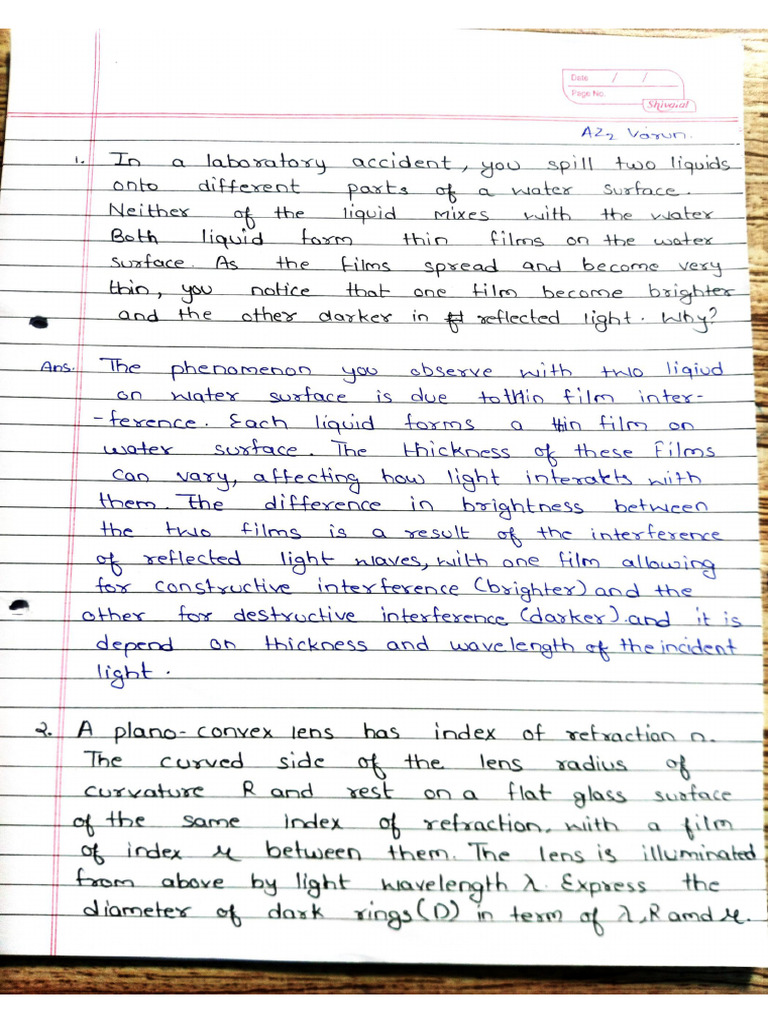 Date / /
Page No.
Shivalal
AZ2 Varun.
1. In a laboratory accident, you spill two liquids
onto different parts of a water surface.
Neither of the liquid mixes with the water
Both liquid form thin films on the water
surface. As the films spread and become very
thin, you notice that one film become brighter
and the other darker in reflected light. Why?
Ans. The phenomenon you observe with two liqiud
on water surface is due to thin film inter-
-ference. Each liquid forms a thin film on
water surface. The thickness of these Films
can vary, affecting how light interakts with
them. The difference in brightness between
the two films is a result of the interference
of reflected light waves, with one film allowing
for constructive interference (brighter) and the
other for destructive interference (darker). and it is
depend on thickness and wavelength of the incident
light.
2. A plano-convex lens has index of refraction n.
The curved side of the lens radius of
curvature R and rest on a flat glass surface
of the same index of refraction, with a film
of index μ between them. The lens is illuminated
from above by light wavelength λ. Express the
diameter of dark rings (D) in term of λ, R amd μ.